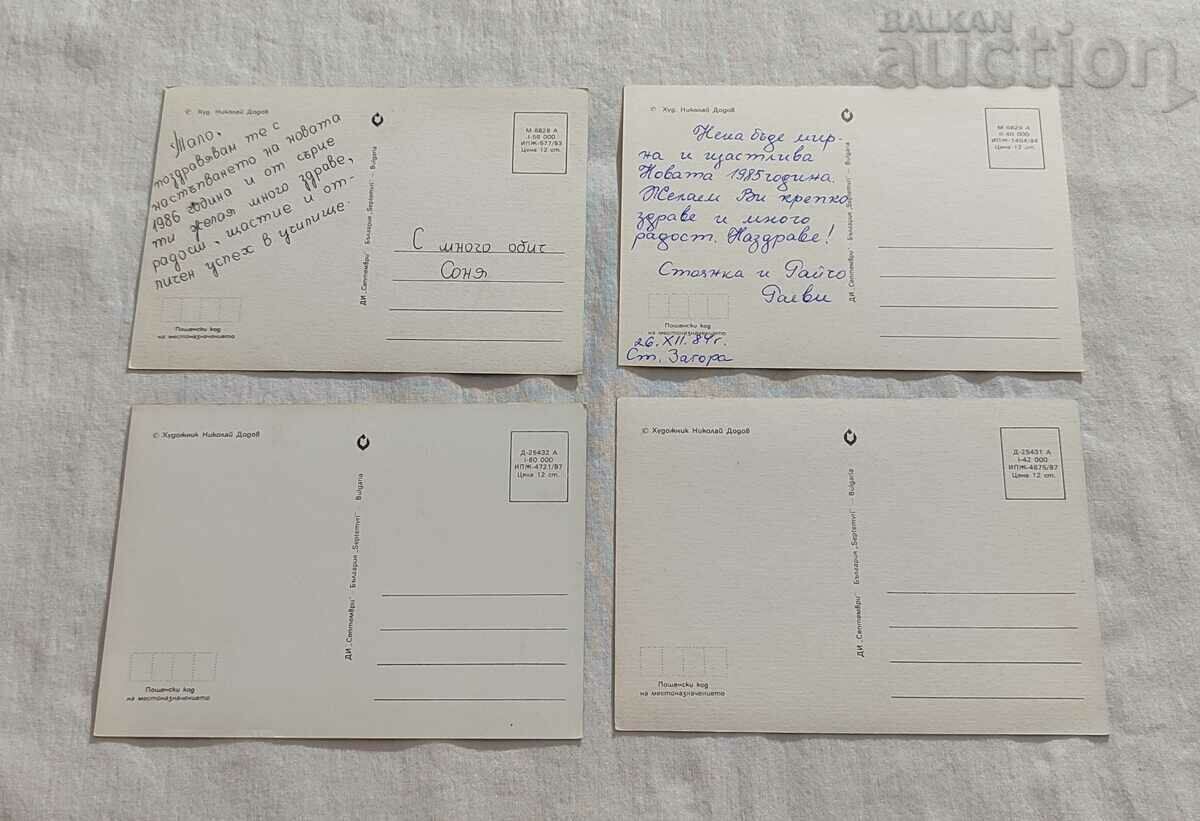 BALKAN
auction
© Худ. Николай Додов
М 6828 А
I-58 000
ИПЖ-577/83
Цена 12 ст.
поздравявам те с
настъпването на новата
1986 година и от сърце
ти желая много здраве,
радост, щастие и от-
личен успех в училище.
С много обич
Соня
ДИ „Септември" - България „Septemvri" - Bulgaria
Пощенски код
на местоназначението
© Худ. Николай Додов
М 6829 А
II-40 000
ИПЖ-1404/84
Цена 12 ст.
Нека бъде мир-
на и щастлива
Новата 1985 година.
Желаем Ви крепко
здраве и много
радост. Наздраве!
Стоянка и
26.XII.84г.
Ст. Загора
ДИ „Септември" - България „Septemvri" - Bulgaria
Пощенски код
на местоназначението
© Художник Николай Додов
Д-25432 А
I-60 000
ИПЖ-4721/87
Цена 12 ст.
ДИ „Септември" - България „Septemvri" - Bulgaria
Пощенски код
на местоназначението
© Художник Николай Додов
Д-25431 А
I-42 000
ИПЖ-4675/87
Цена 12 ст.
ДИ „Септември" - България „Septemvri" - Bulgaria
Пощенски код
на местоназначението